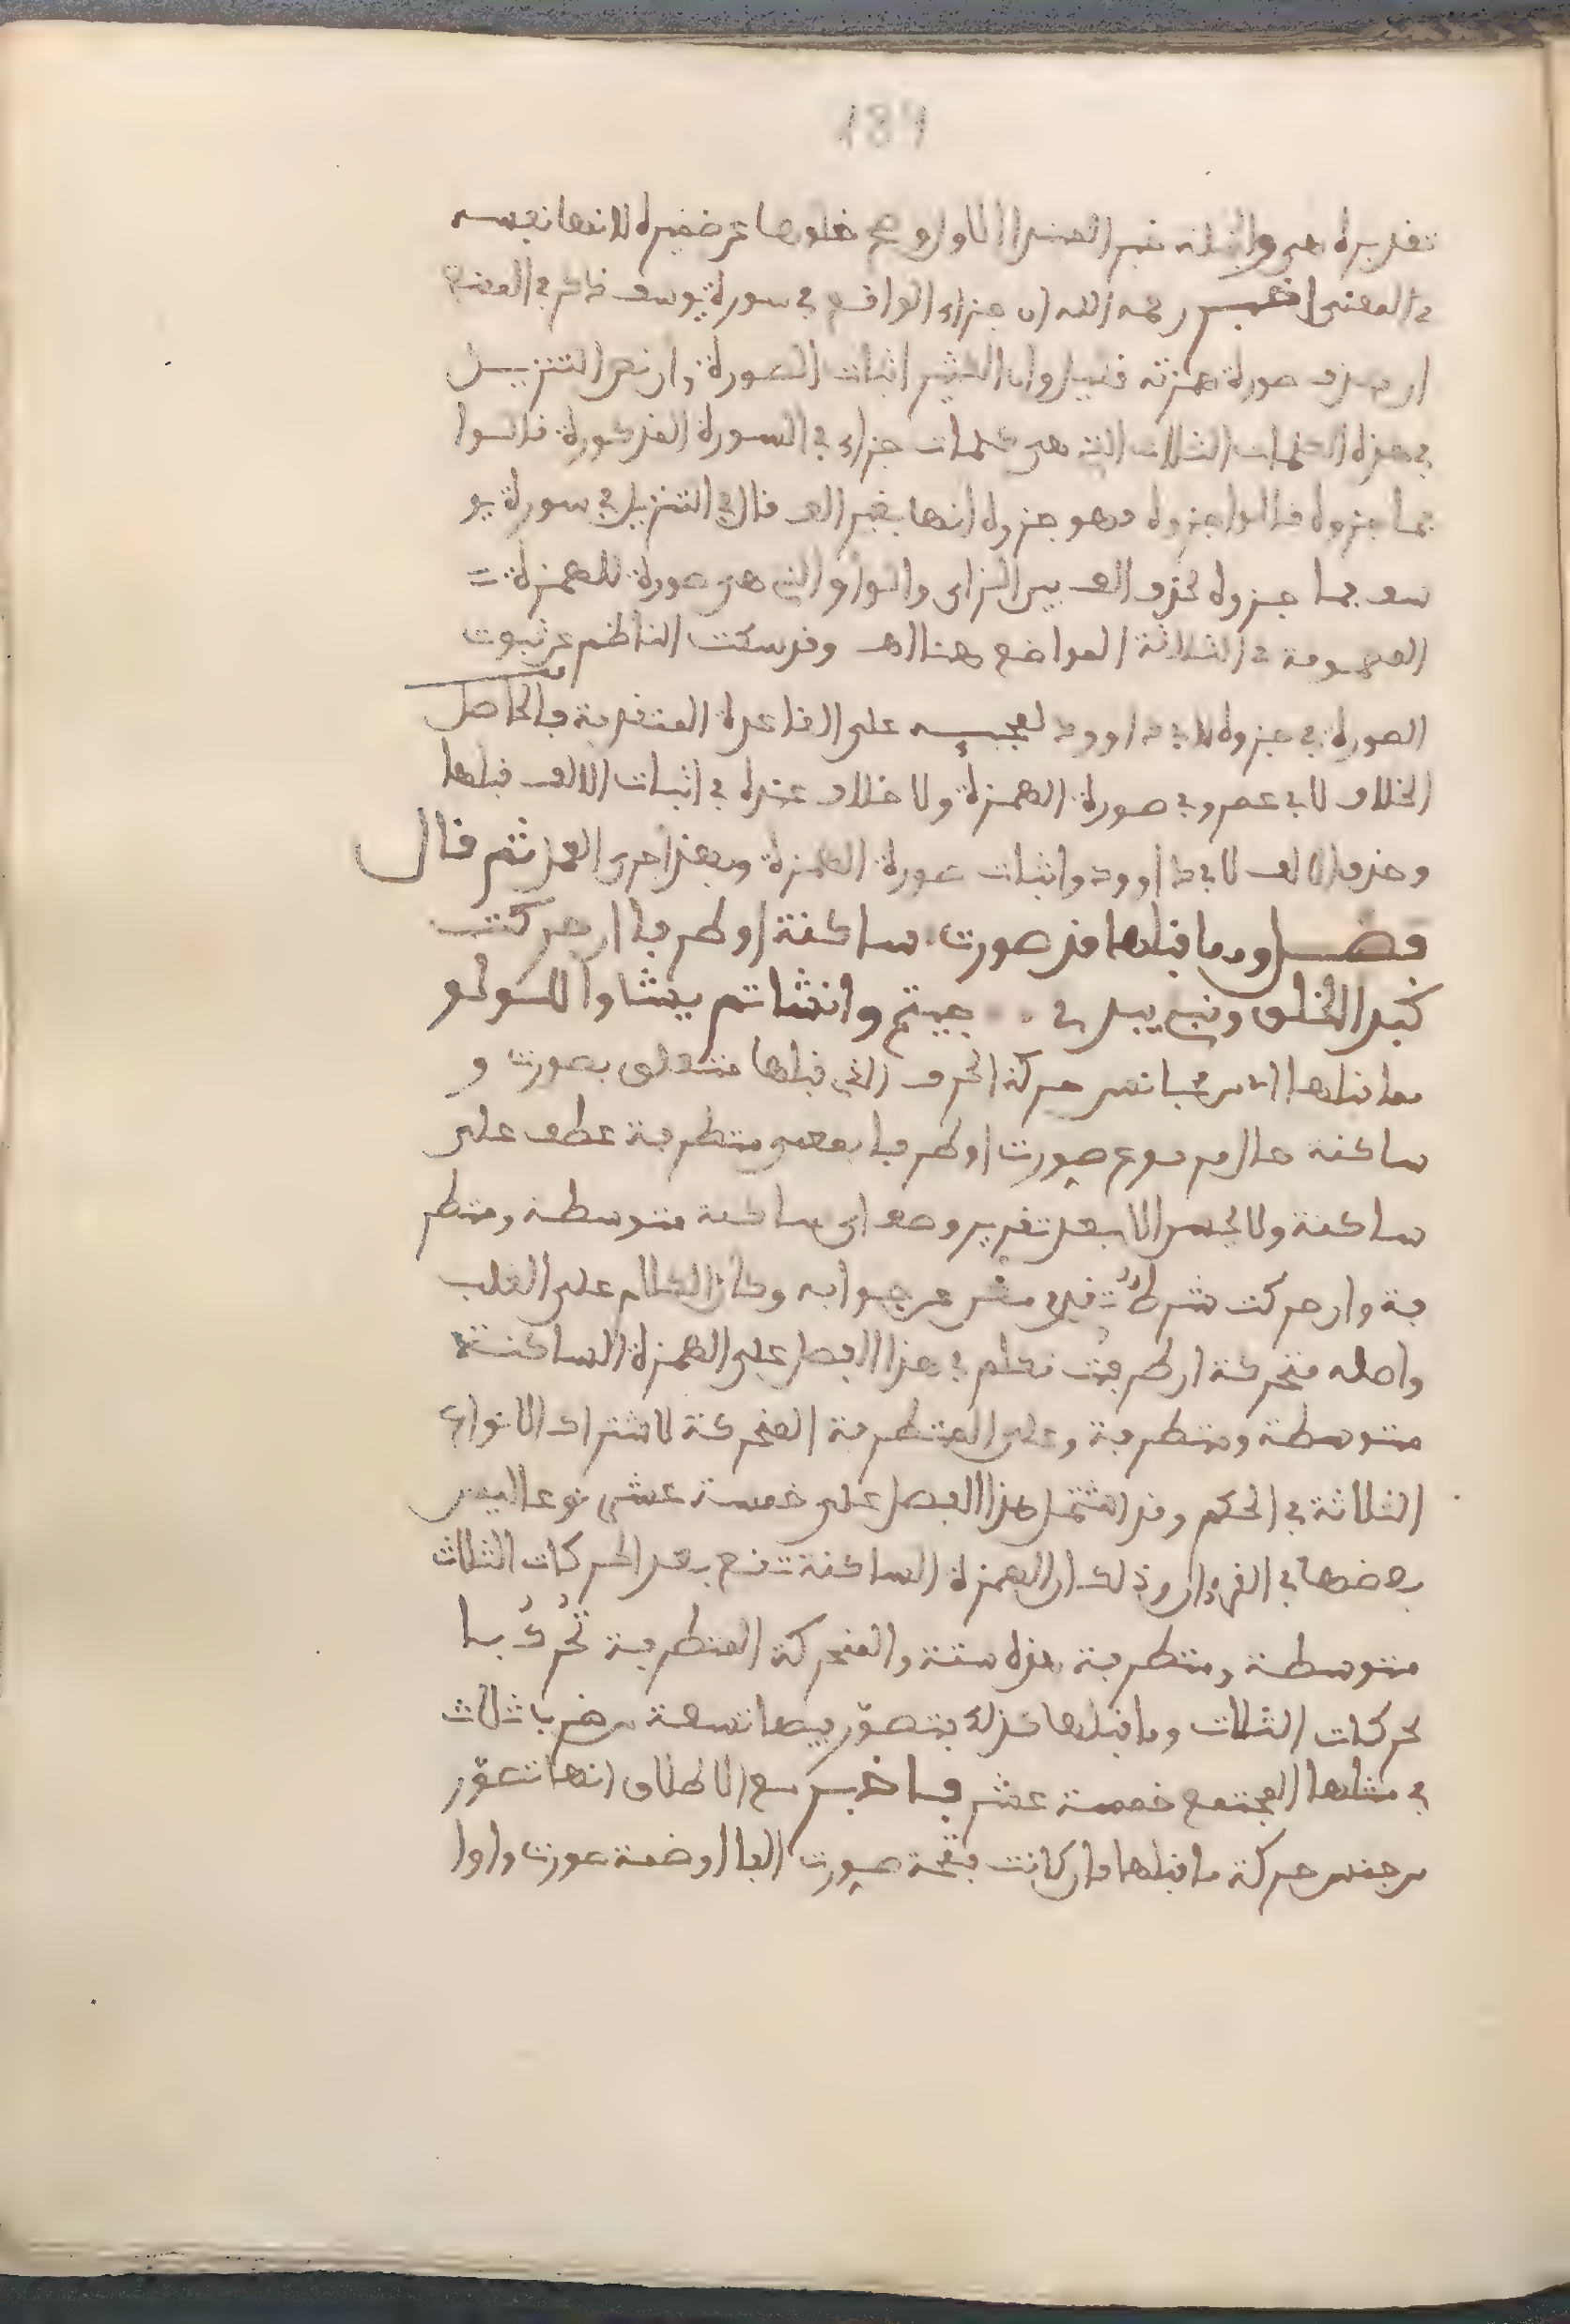 184
تقديره هي وامثلة خبر المبتدا الاول وصح خلوها عن ضميره لانها نفسه
في المعنى اخبر رحمه الله ان جزاء الواقع في سورة يوسف ذكر في المقنع
ان حذف صورة همزته قليل وان الكثير اثبات الصورة وان نص التنزيل
في هذه الكلمات الثلاث التي هي كلمات جزاء في السورة المذكورة قالوا
فما جزوه قالوا جزوه فهو جزوه انها بغير الف قال في التنزيل في سورة يو
سف فما جزوه بحذف الف بين الزاى والواو التي هي صورة للهمزة =
المضمومة في الثلاثة المواضع هنا اهـ وقد سكت الناظم عن ثبوت
الصورة في جزوه لابي داوود لمجيـه على القاعدة المتقدمة فالحاصل
الخلاف لابي عمرو في صورة الهمزة ولا خلاف عنده في اثبات الالف قبلها
وحذف الالف لابي داوود واثبات صورة الهمزة وبهذا جرى العمل ثم قال
فصل ومما قبلها قد صورت ساكنة او طرفا ان حركت
كبدا الخلق ونبئ يبدئ جيتم وانشاتم ينشؤا اللؤلؤ
مما قبلها اي من مجانس حركة الحرف الذي قبلها متعلق بصورت و
ساكنة حال من مرفوع صورت او طرفا بمعنى متطرفة عطف على
ساكنة ولا يحسن الا بعد تقدير وصف اي ساكنة متوسطة ومتطر
فة وان حركت شرط مغن عن جوابه وكان الكلام على القلب
واصله متحركة ان طرفت تكلم في هذا الفصل على الهمزة الساكنة
متوسطة ومتطرفة وعلى المتطرفة المتحركة لاشتراك الانواع
الثلاثة في الحكم وقد اشتمل هذا الفصل على خمسة عشر نوعا ليس
بعضها في القرءان وذلك ان الهمزة الساكنة تقع بعد الحركات الثلاث
متوسطة ومتطرفة هذه ستة والمتحركة المتطرفة تُحرك با
لحركات الثلاث وما قبلها كذلك يتصور فيها تسعة من ضرب ثلاث
في مثلها المجتمع خمسة عشر فاخبر مع الاطلاق انها تصور
من جنس حركة ما قبلها فان كانت فتحة صورت الفا او ضمة صورت واوا